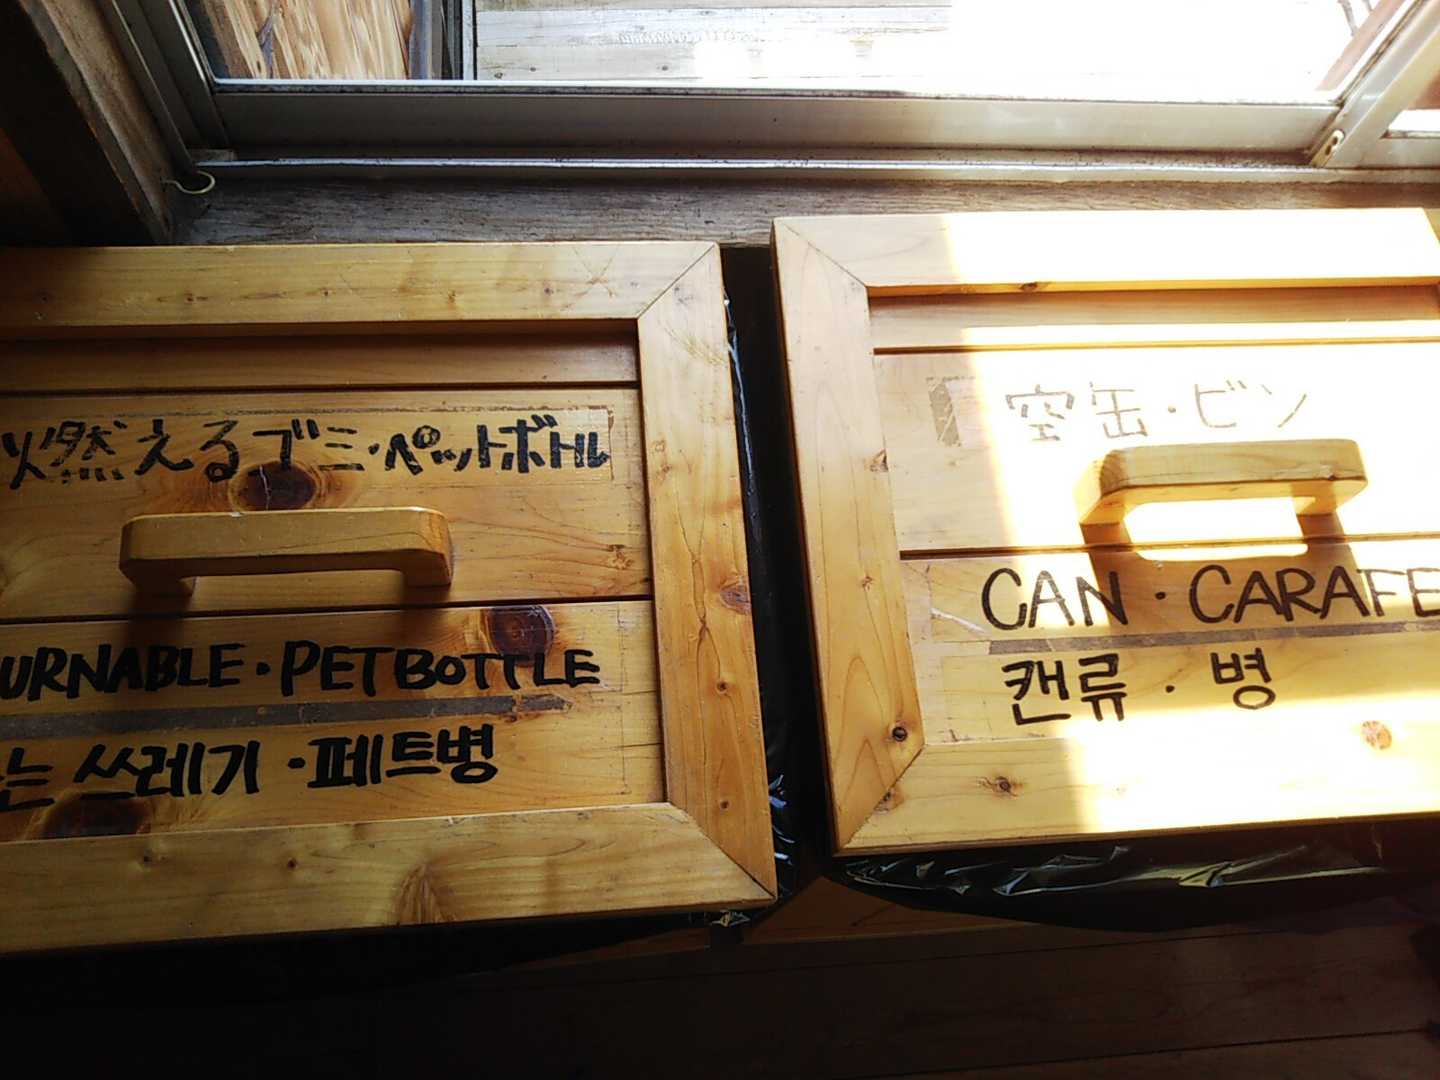 燃えるゴミ・ペットボトル
URNABLE・PET BOTTLE
는 쓰레기・페트병
空缶・ビン
CAN・CARAFE
캔류・병